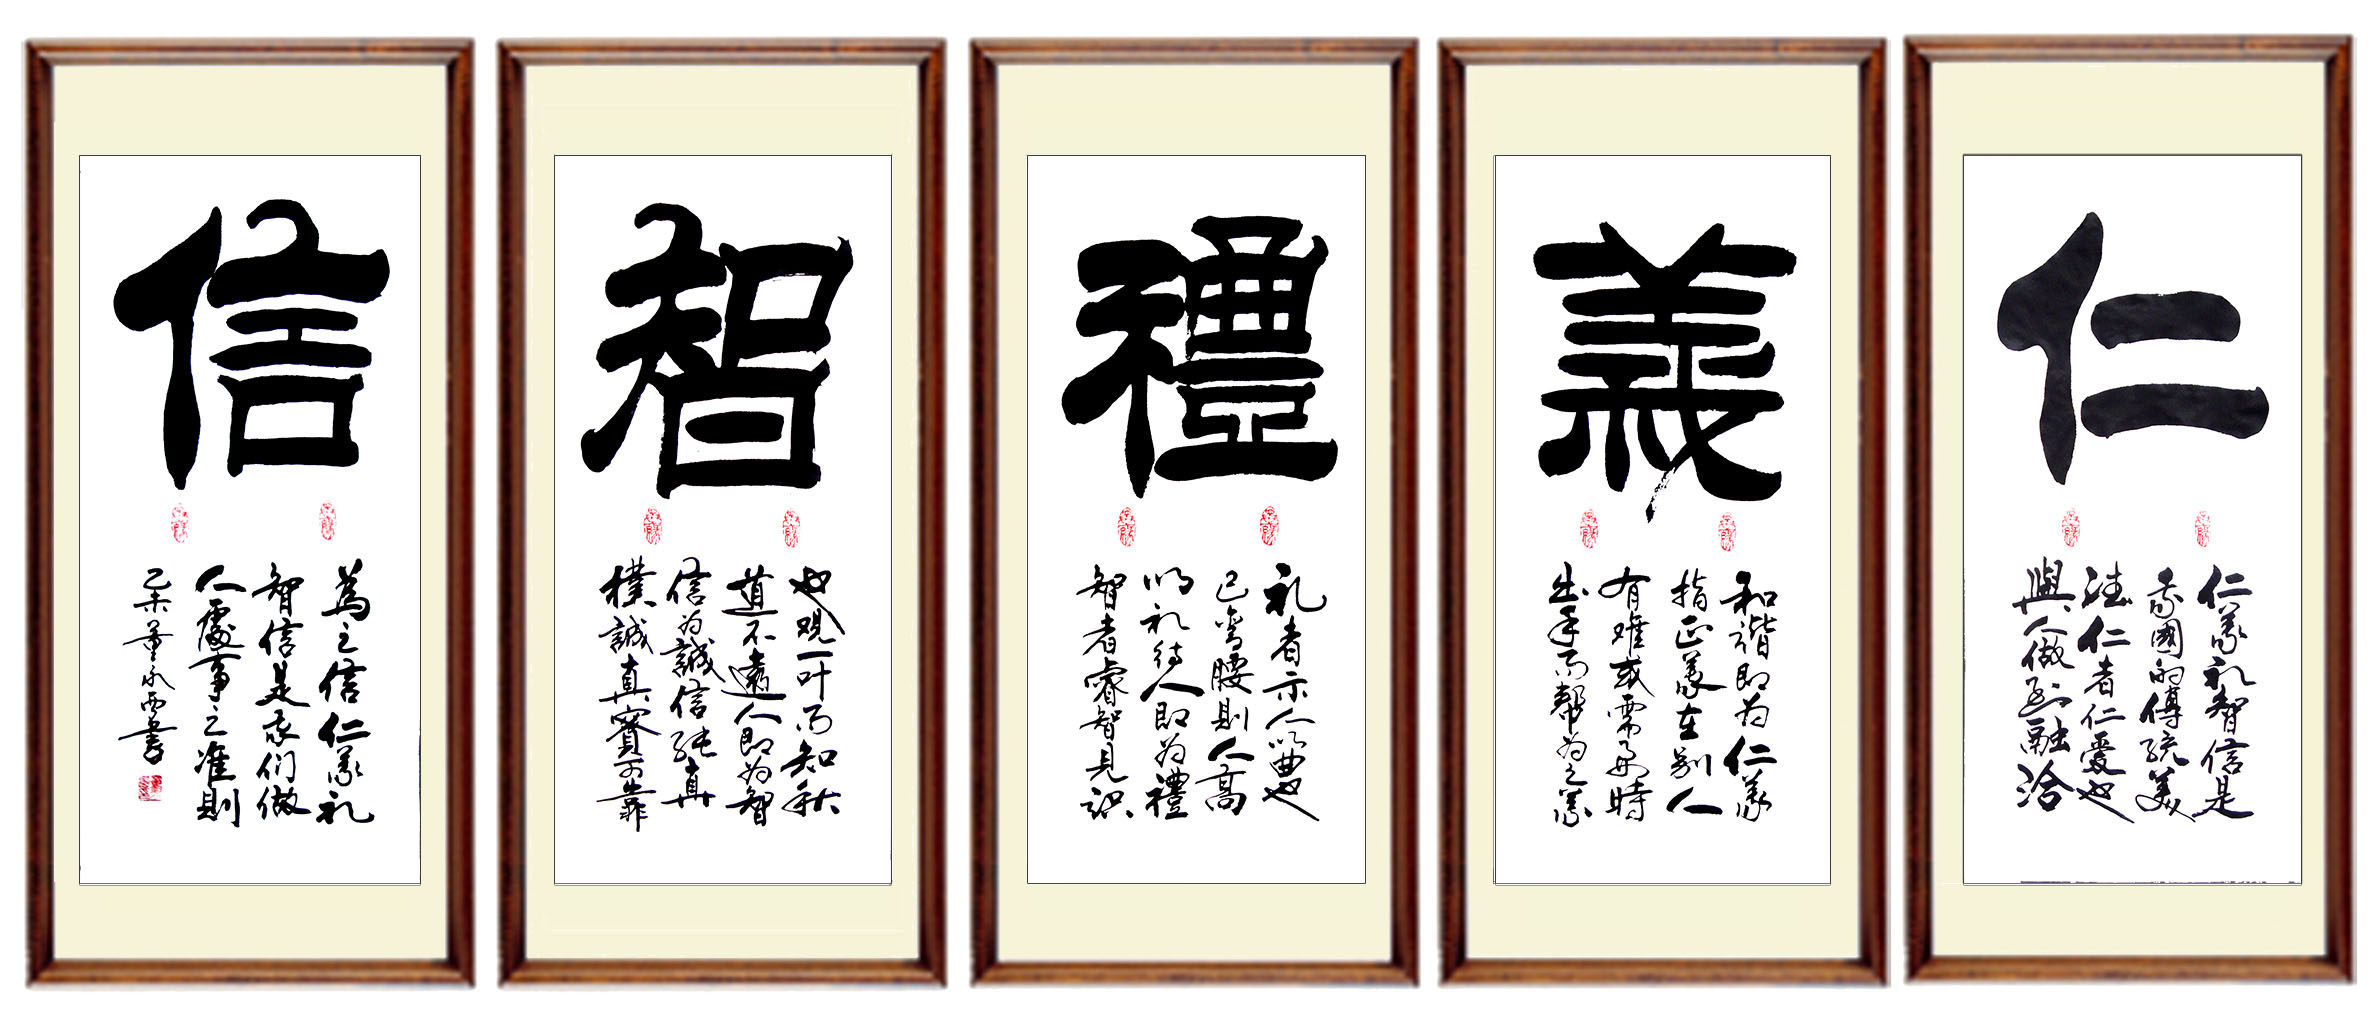 仁
仁義礼智信是
我國的傳統美
德仁者仁愛也
與人做到融洽
義
和諧即为仁義
指正義在别人
有难或需要時
出手而幫为之義
禮
礼者示人以曲也
己弯腰則人高
以礼待人即为禮
智者睿智見识
智
也观一叶而知秋
道不遠人即为智
信为誠信純真
樸誠真實可靠
信
為之信仁義礼
智信是我们做
人處事之准則
乙未董永西書